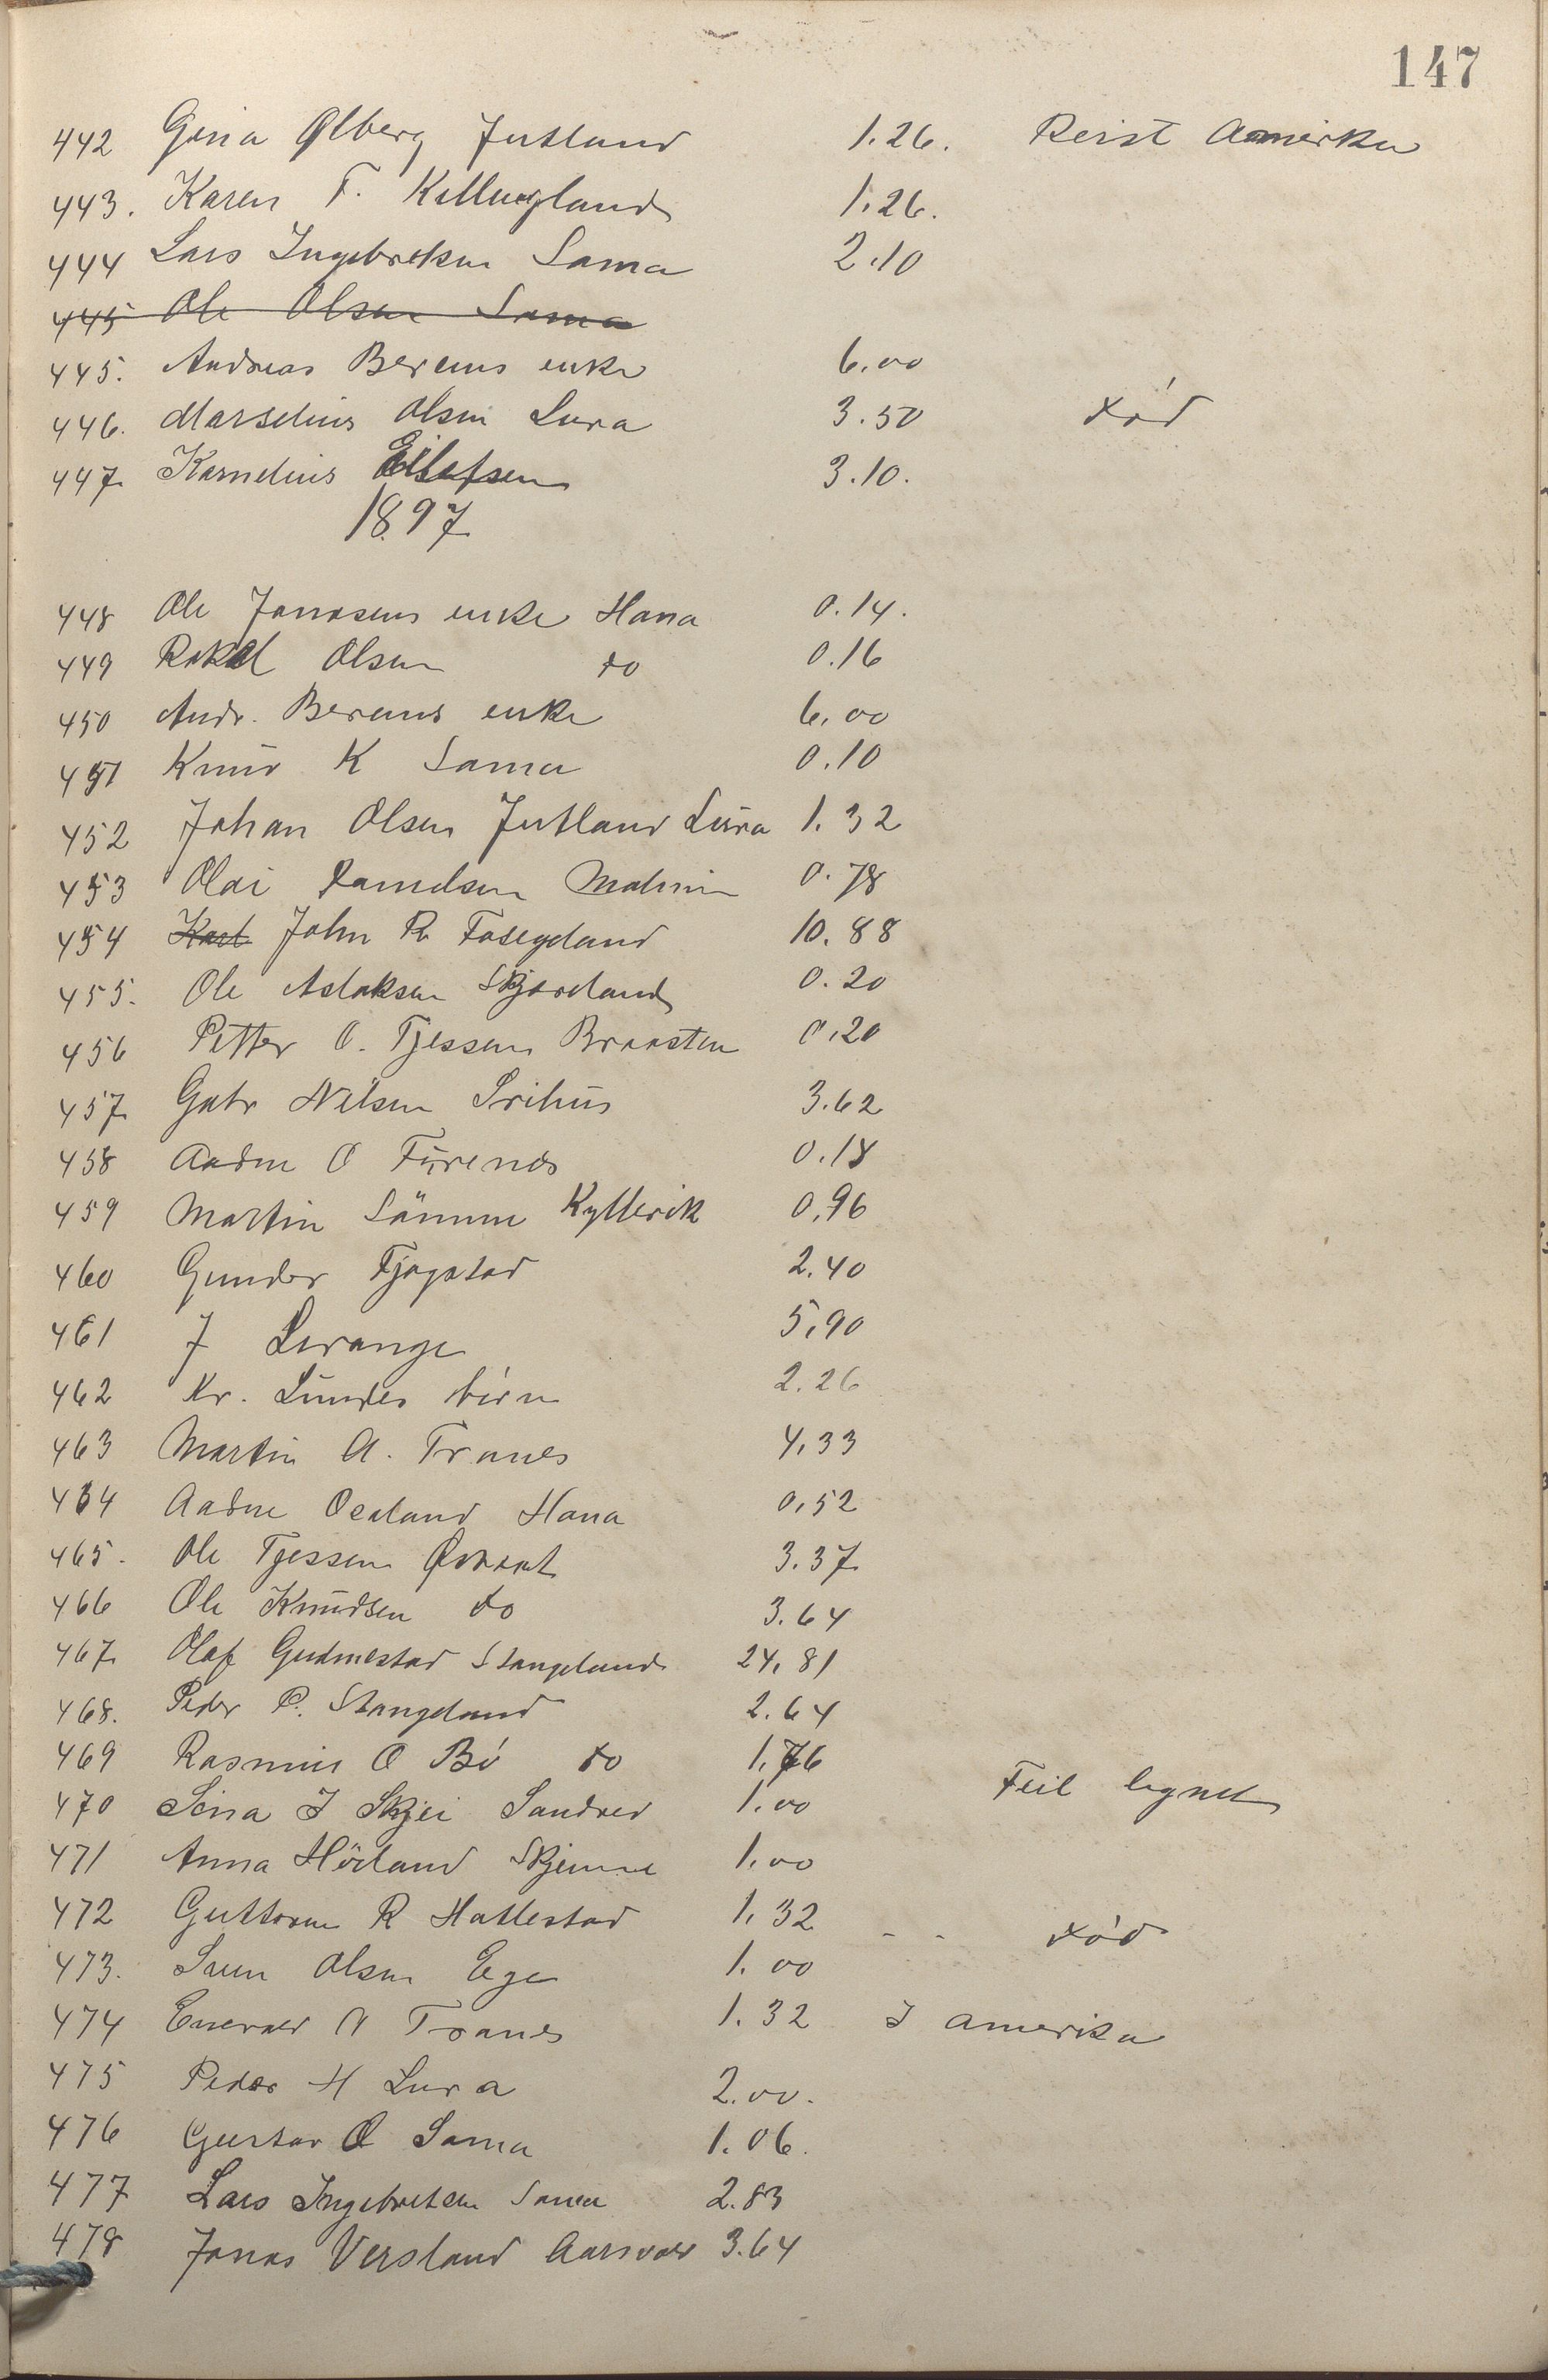 147
442 Gina Ølberg Jutland 1.26. Reist Amerika
443. Karen T. Kellugland 1.26.
444 Lars Ingebretsen Soma 2.10
445 Ole Olsen Soma
445. Andreas Berents enke 6.00
446. Marselius Olsen Lura 3.50 død
447 Kornelius Eilefsen 3.10.
1897
448 Ole Jonasens enke Hana 0.14.
449 Rakel Olsen do 0.16
450 Andr. Berents enke 6.00
451 Knud K Soma 0.10
452 Johan Olsen Jutland Lura 1.32
453 Olai Danielsen Malmin 0.78
454 Karl John R Foseland 10.88
455. Ole Aslaksen Skjæveland 0.20
456 Petter O. Tjessem Braasten 0.20
457 Gabr Nilsen Srihus 3.62
458 Aadne O Furenes 0.18
459 Martin Sømme Kyllevik 0,96
460 Gunder Fjogstad 2.40
461 J Lerange 5,90
462 Kr. Lundes børn 2.26
463 Martin A. Tranes 4,33
464 Aadne Oealand Hana 0,52
465. Ole Tjessem Østraat 3.37
466 Ole Knudsen do 3.64
467 Olaf Gudmestad Stangeland 24,81
468. Peder P. Stangeland 2.64
469 Rasmus O Bø do 1,76
470 Sina J Skjei Sandved 1.00 Feil lignet
471 Anna Hörland Skjenne 1.00
472 Guttorm R Hatlestad 1,32 - - død
473. Sven Olsen Ege 1.00
474 Enevald A Tranes 1.32 I Amerika
475 Peder H Lura 2.00.
476 Gustav O Soma 1.06.
477 Lars Ingebretsen Soma 2.83
478 Jonas Versland Aarsvold 3.64